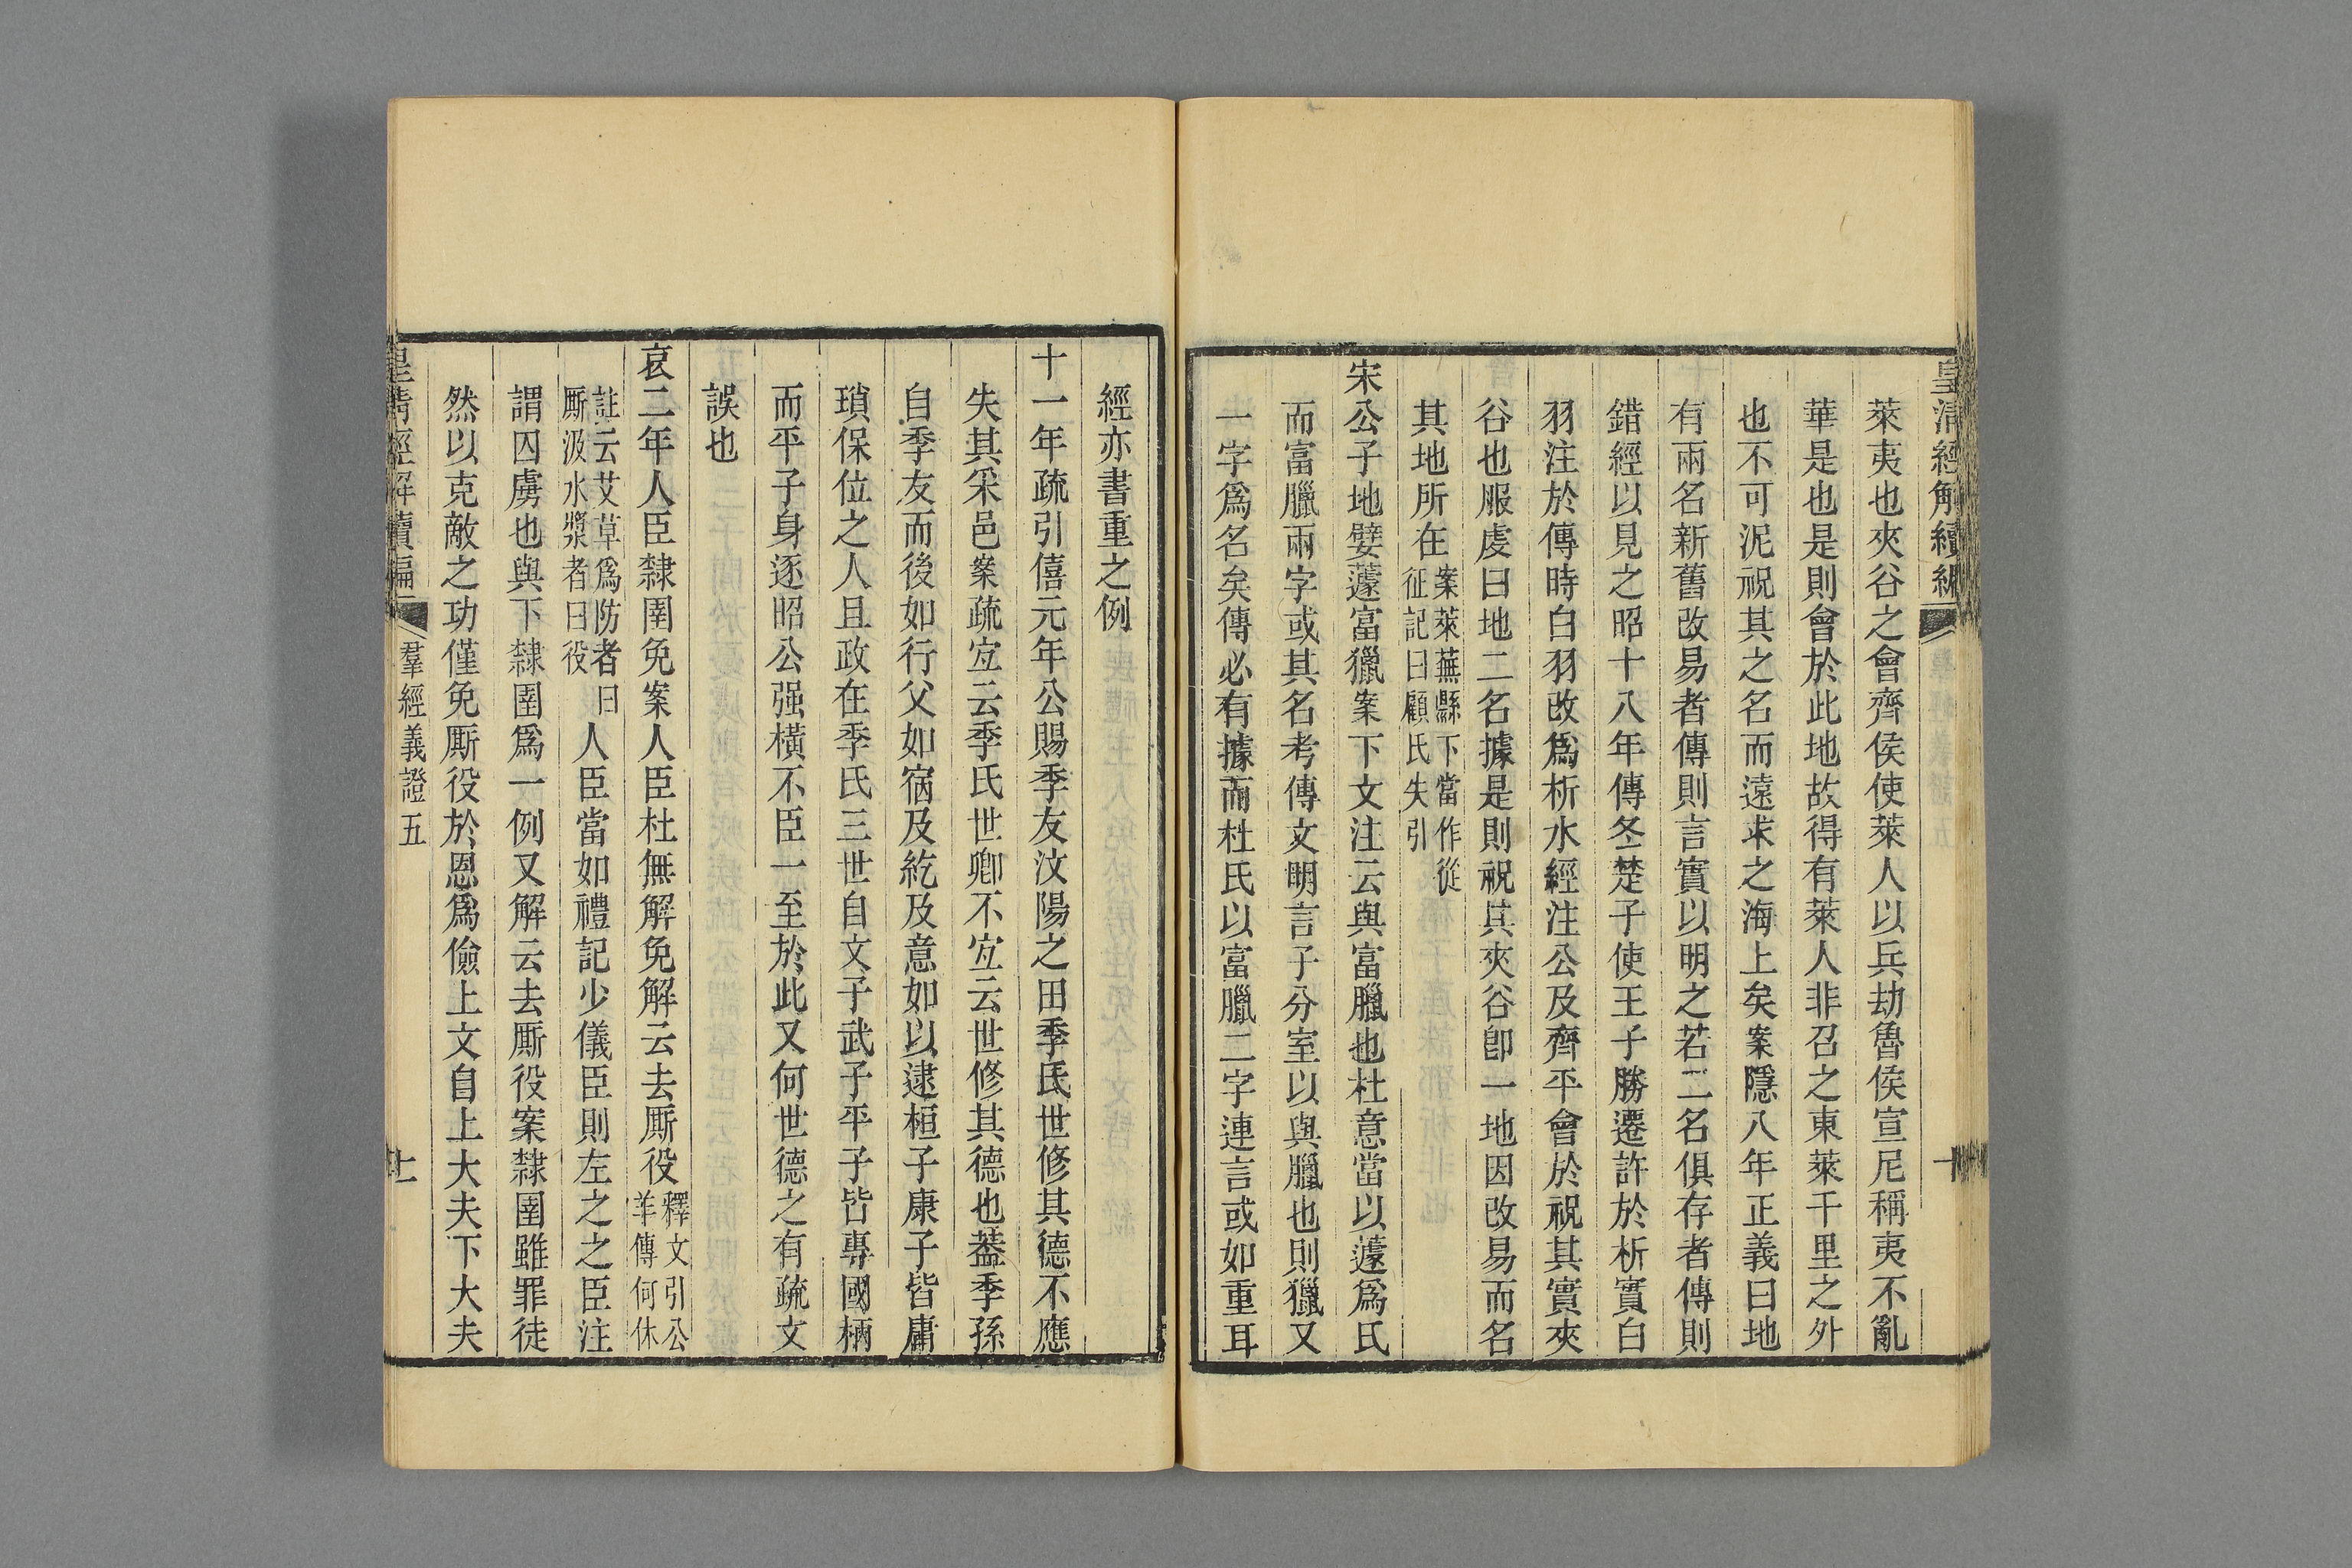 皇清經解續編
十
萊夷也夾谷之會齊侯使萊人以兵劫魯侯宣尼稱夷不亂
華是也是則會於此地故得有萊人非召之東萊千里之外
也不可泥祝其之名而遠求之海上矣案隱八年正義曰地
有兩名新舊改易者傳則言實以明之若二名俱存者傳則
錯經以見之昭十八年傳冬楚子使王子勝遷許於析實白
羽注於傳時白羽改爲析水經注公及齊平會於祝其實夾
谷也服虔曰地二名據是則祝其夾谷卽一地因改易而名
其地所在案萊蕪縣下當作從征記曰顧氏失引
宋公子地嬖蘧富獵案下文注云與富臘也杜意當以蘧爲氏
而富臘兩字或其名考傳文明言子分室以與臘也則獵又
一字爲名矣傳必有據而杜氏以富臘二字連言或如重耳
經亦書重之例
十一年疏引僖元年公賜季友汶陽之田季氏世修其德不應
失其采邑案疏宜云季氏世卿不宜云世修其德也葢季孫
自季友而後如行父如宿及紇及意如以逮桓子康子皆庸
瑣保位之人且政在季氏三世自文子武子平子皆專國柄
而平子身逐昭公强橫不臣一至於此又何世德之有疏文
誤也
哀二年人臣隸圉免案人臣杜無解免解云去厮役釋文引公羊傳何休
註云艾草爲防者曰厮汲水漿者曰役人臣當如禮記少儀臣則左之之臣注
謂囚虜也與下隸圉爲一例又解云去厮役案隸圉雖罪徒
然以克敵之功僅免厮役於恩爲儉上文自上大夫下大夫
皇清經解續編
羣經義證五
十